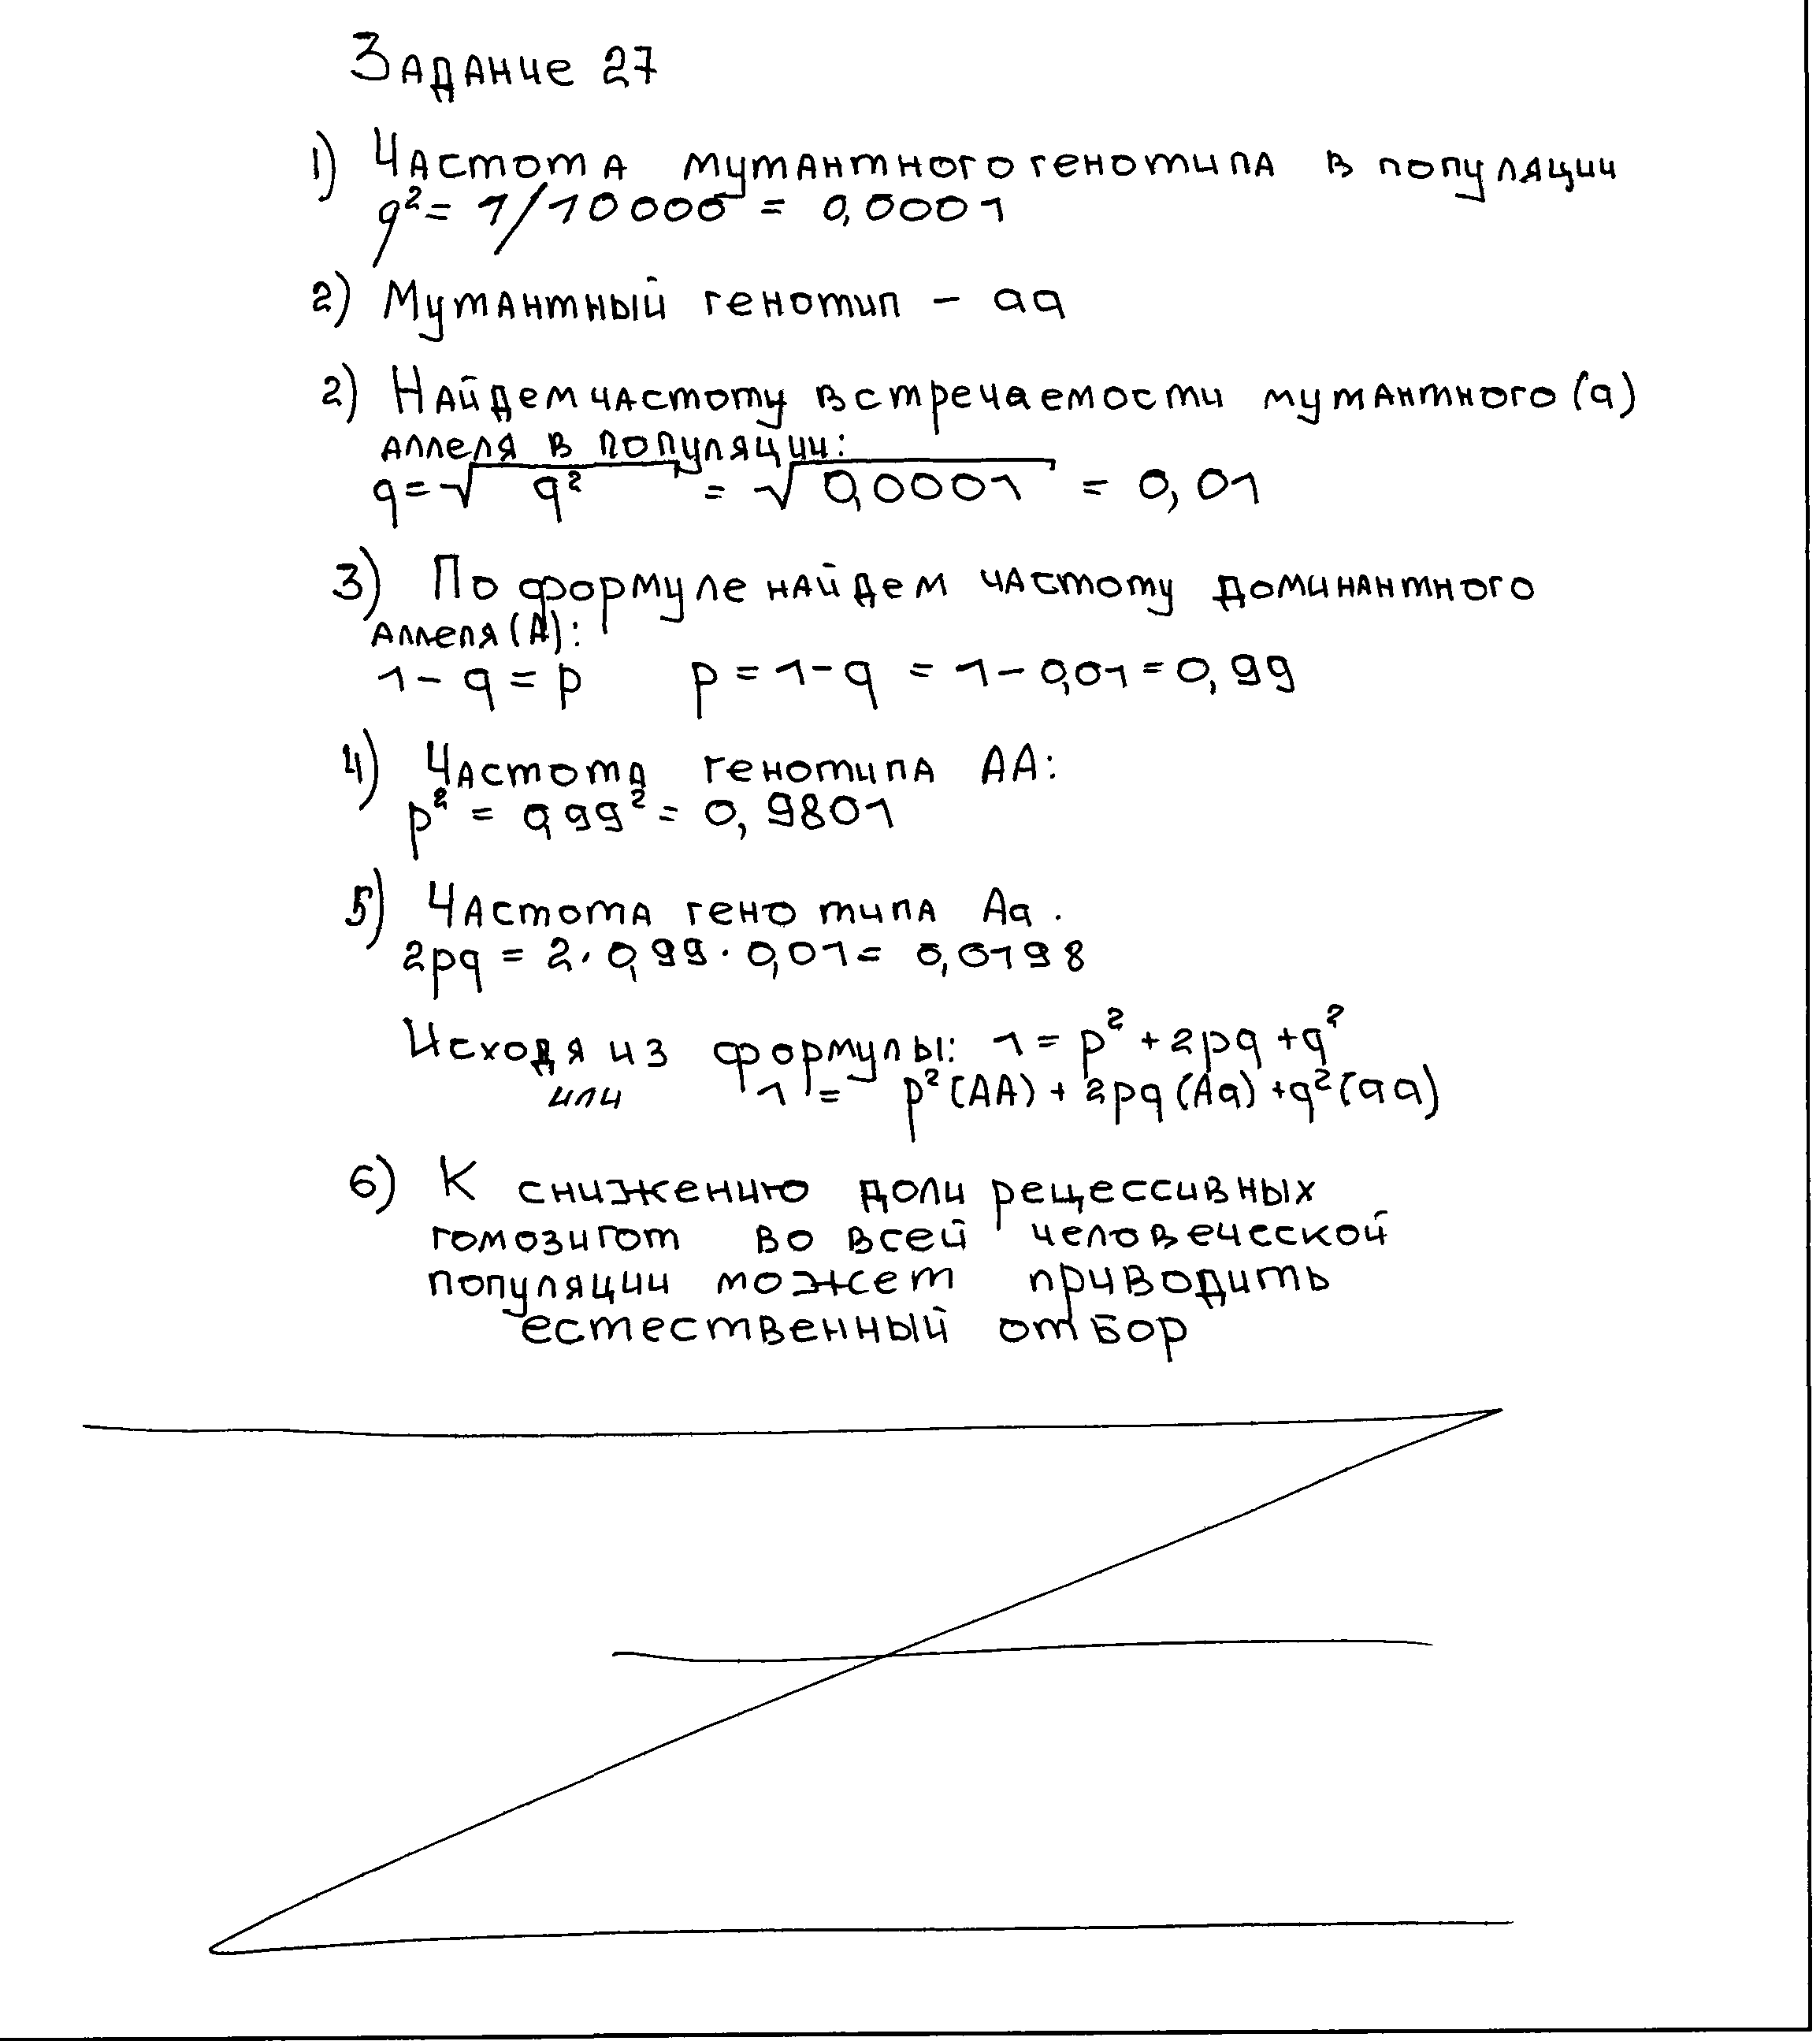 Задание 27
1) Частота мутантного генотипа в популяции
q² = 1/10000 = 0,0001
2) Мутантный генотип - aa
2) Найдем частоту встречаемости мутантного (a)
аллеля в популяции:
q = √q² = √0,0001 = 0,01
3) По формуле найдем частоту доминантного
аллеля (A):
1 - q = p p = 1 - q = 1 - 0,01 = 0,99
4) Частота генотипа AA:
p² = 0,99² = 0,9801
5) Частота генотипа Aa.
2pq = 2 · 0,99 · 0,01 = 0,0198
Исходя из формулы: 1 = p² + 2pq + q²
или 1 = p² (AA) + 2pq (Aa) + q² (aa)
6) К снижению доли рецессивных
гомозигот во всей человеческой
популяции может приводить
естественный отбор